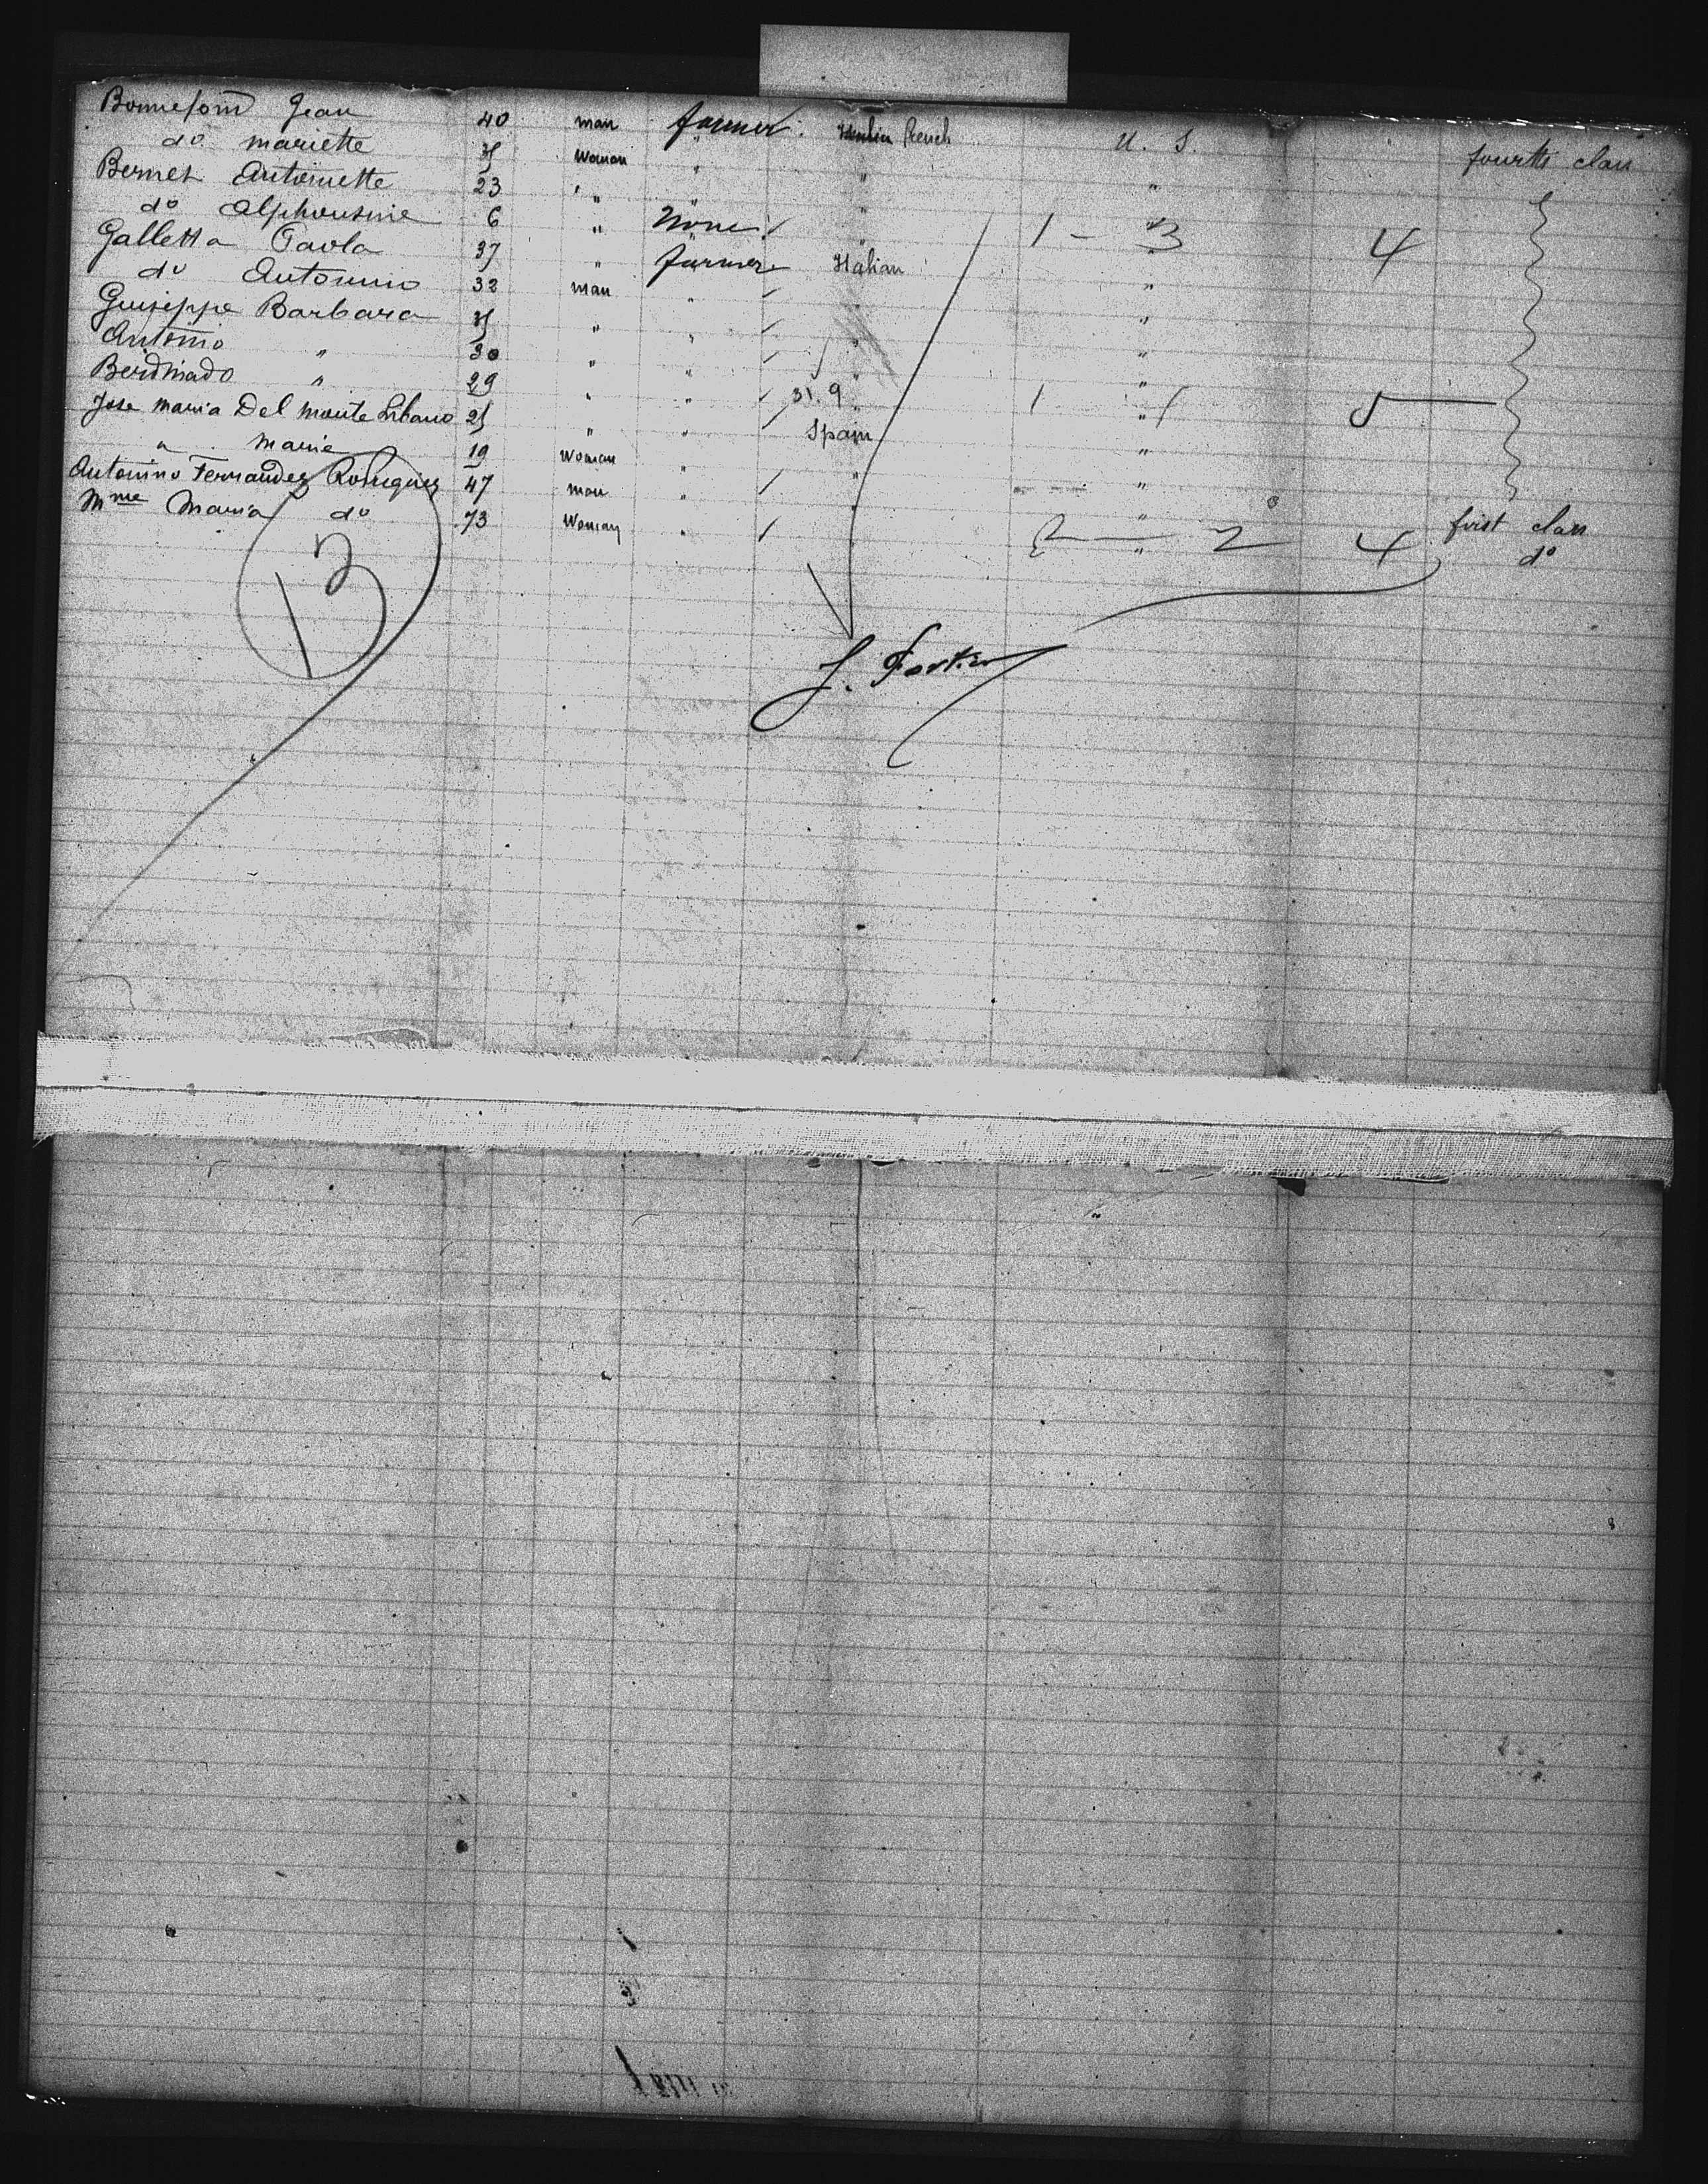 Jean 40 man farmer French U. S. fourth class
do mariette 35 Woman " " "
Bernet Antoinette 23 " " " "
do Alphonsine 6 " None " " 1 - 3 4
Galletta Paola 37 " farmer Italian "
do Antonino 32 man " " "
Guiseppe Barbara 35 " " " "
Antonio " 30 " " " "
" 29 " " 31.9 " " 1 5
Jose Maria Del Monte Libano 25 " " Spain "
" Marie 19 Woman " " "
Antonino Fernandez Rodriguez 47 man " " first class
Mme Maria do 73 Woman " " 2 - 2 4 do
13
J. Fortier